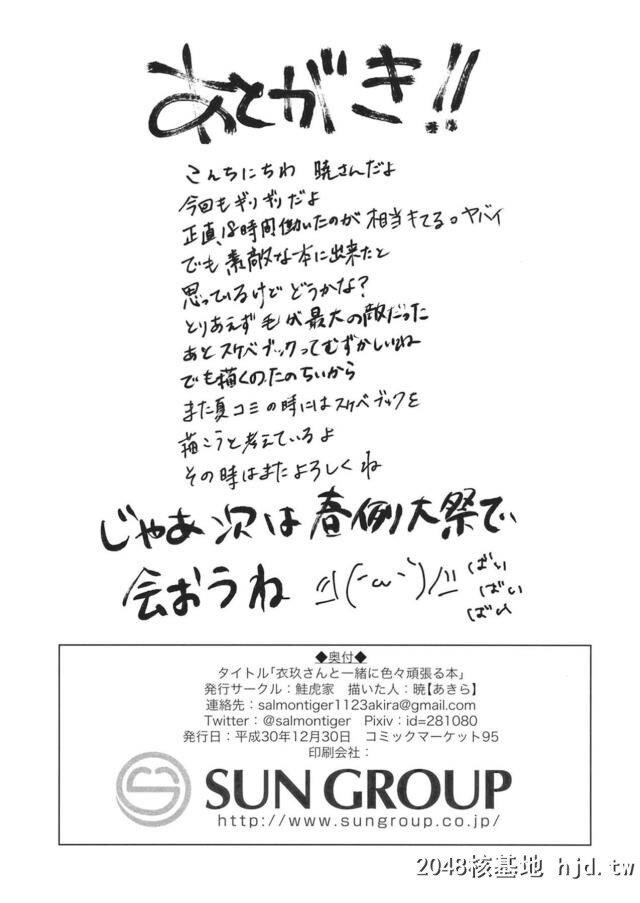 あとがき!!
こんちにちわ 暁さんだよ
今回もギリギリだよ
正直、18時間働いたのが 相当キてる。ヤバイ
でも 素敵な本に出来たと
思っているけど どうかな?
とりあえず毛が最大の敵だった
あとスケベブックってむずかしいね
でも描くのたのちいから
また夏コミの時にはスケベブックを
描こうと考えているよ
その時はまたよろしくね
じゃあ次は春例大祭で
会おうね \\(´ω`)//
ばい
ばい
ばい
◆奥付◆
タイトル「衣玖さんと一緒に色々頑張る本」
発行サークル:鮭虎家 描いた人:暁【あきら】
連絡先:salmontiger1123akira@gmail.com
Twitter:@salmontiger Pixiv:id=281080
発行日:平成30年12月30日 コミックマーケット95
印刷会社:
SUN GROUP
http://www.sungroup.co.jp/
2048核基地 hjd.tw